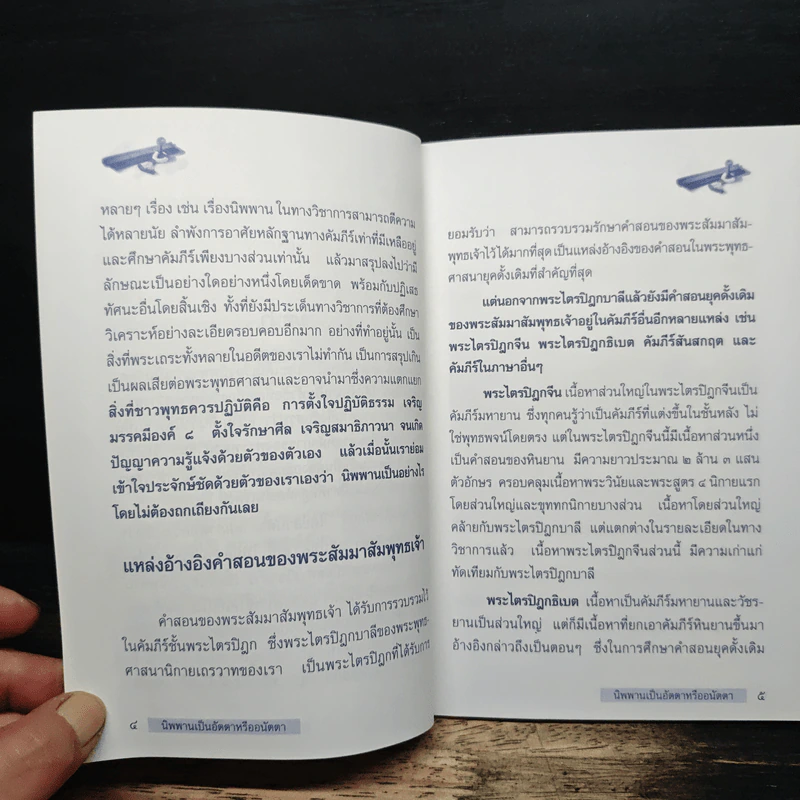 หลายๆ เรื่อง เช่น เรื่องนิพพาน ในทางวิชาการสามารถตีความ
ได้หลายนัย ลำพังการอาศัยหลักฐานทางคัมภีร์เท่าที่มีเหลืออยู่
และศึกษาคัมภีร์เพียงบางส่วนเท่านั้น แล้วมาสรุปลงไปว่ามี
ลักษณะเป็นอย่างใดอย่างหนึ่งโดยเด็ดขาด พร้อมกับปฏิเสธ
ทัศนะอื่นโดยสิ้นเชิง ทั้งที่ยังมีประเด็นทางวิชาการที่ต้องศึกษา
วิเคราะห์อย่างละเอียดรอบคอบอีกมาก อย่างที่ทำอยู่นั้น เป็น
สิ่งที่พระเถระทั้งหลายในอดีตของเราไม่ทำกัน เป็นการสรุปเกิน
เป็นผลเสียต่อพระพุทธศาสนาและอาจนำมาซึ่งความแตกแยก
สิ่งที่ชาวพุทธควรปฏิบัติคือ การตั้งใจปฏิบัติธรรม เจริญ
มรรคมีองค์ ๘ ตั้งใจรักษาศีล เจริญสมาธิภาวนา จนเกิด
ปัญญาความรู้แจ้งด้วยตัวของตัวเอง แล้วเมื่อนั้นเราย่อม
เข้าใจประจักษ์ชัดด้วยตัวของเราเองว่า นิพพานเป็นอย่างไร
โดยไม่ต้องถกเถียงกันเลย
แหล่งอ้างอิงคำสอนของพระสัมมาสัมพุทธเจ้า
คำสอนของพระสัมมาสัมพุทธเจ้า ได้รับการรวบรวมไว้
ในคัมภีร์ชั้นพระไตรปิฎก ซึ่งพระไตรปิฎกบาลีของพระพุทธ-
ศาสนานิกายเถรวาทของเรา เป็นพระไตรปิฎกที่ได้รับการ
๔ นิพพานเป็นอัตตาหรืออนัตตา
ยอมรับว่า สามารถรวบรวมรักษาคำสอนของพระสัมมาสัม-
พุทธเจ้าไว้ได้มากที่สุด เป็นแหล่งอ้างอิงของคำสอนในพระพุทธ-
ศาสนายุคดั้งเดิมที่สำคัญที่สุด
แต่นอกจากพระไตรปิฎกบาลีแล้วยังมีคำสอนยุคดั้งเดิม
ของพระสัมมาสัมพุทธเจ้าอยู่ในคัมภีร์อื่นอีกหลายแหล่ง เช่น
พระไตรปิฎกจีน พระไตรปิฎกธิเบต คัมภีร์สันสกฤต และ
คัมภีร์ในภาษาอื่นๆ
พระไตรปิฎกจีน เนื้อหาส่วนใหญ่ในพระไตรปิฎกจีนเป็น
คัมภีร์มหายาน ซึ่งทุกคนรู้ว่าเป็นคัมภีร์ที่แต่งขึ้นในชั้นหลัง ไม่
ใช่พุทธพจน์โดยตรง แต่ในพระไตรปิฎกจีนนี้มีเนื้อหาส่วนหนึ่ง
เป็นคำสอนของหินยาน มีความยาวประมาณ ๒ ล้าน ๓ แสน
ตัวอักษร ครอบคลุมเนื้อหาพระวินัยและพระสูตร ๔ นิกายแรก
โดยส่วนใหญ่และขุททกนิกายบางส่วน เนื้อหาโดยส่วนใหญ่
คล้ายกับพระไตรปิฎกบาลี แต่แตกต่างในรายละเอียดในทาง
วิชาการแล้ว เนื้อหาพระไตรปิฎกจีนส่วนนี้ มีความเก่าแก่
ทัดเทียมกับพระไตรปิฎกบาลี
พระไตรปิฎกธิเบต เนื้อหาเป็นคัมภีร์มหายานและวัชร-
ยานเป็นส่วนใหญ่ แต่ก็มีเนื้อหาที่ยกเอาคัมภีร์หินยานขึ้นมา
อ้างอิงกล่าวถึงเป็นตอนๆ ซึ่งในการศึกษาคำสอนยุคดั้งเดิม
นิพพานเป็นอัตตาหรืออนัตตา ๕